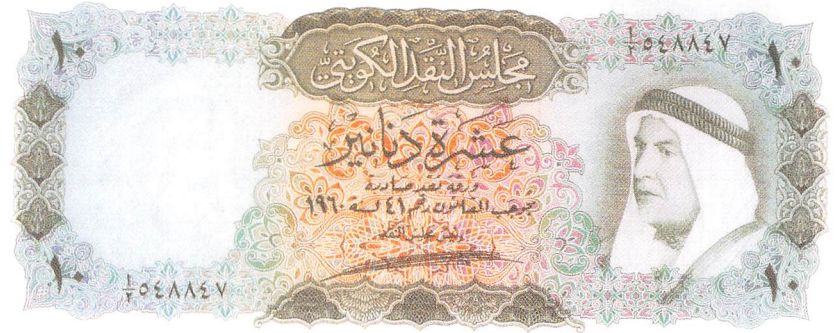 ١٠ مجلس النقد الكويتي ١/٢ ٥٤٨٨٤٧ ١٠
عشرة دنانير
ورقة نقد صادرة
بموجب القانون رقم ٤١ لسنة ١٩٦٠
رئيس مجلس النقد
١٠ ١/٢ ٥٤٨٨٤٧ ١٠